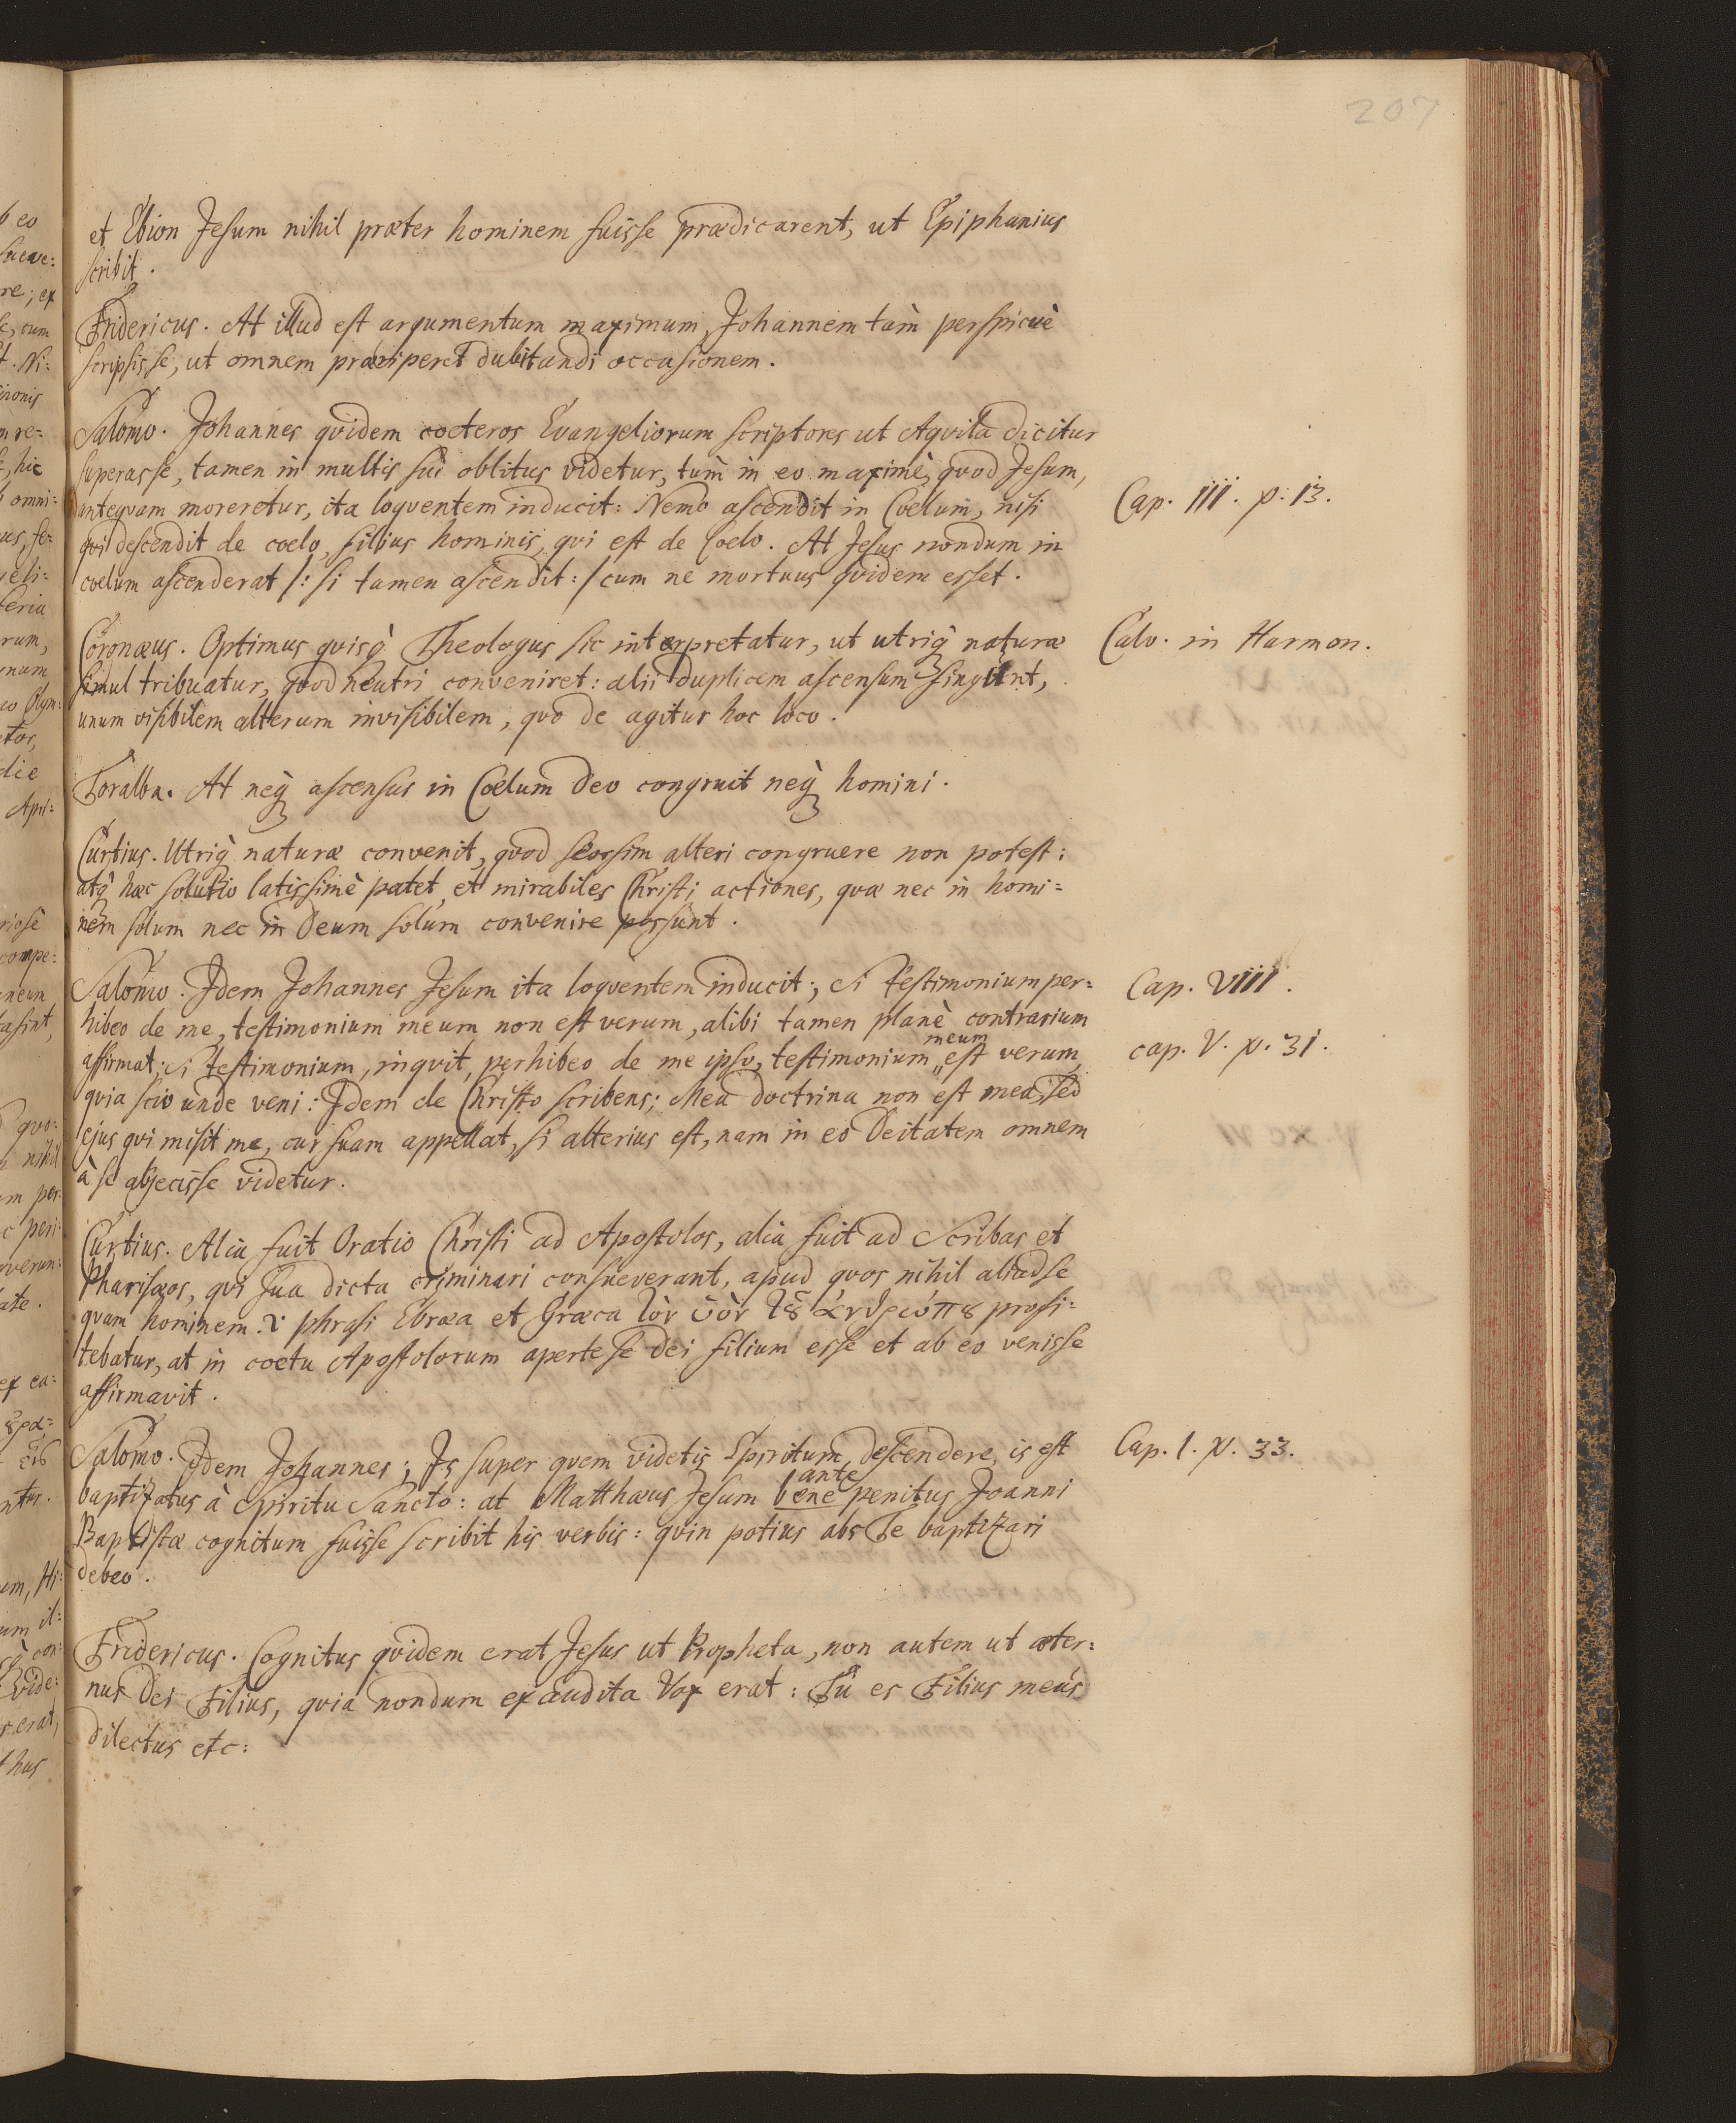 207
et Ebion Jesum nihil præter hominem fuisse prædicarent, ut Epiphanius
scribit.
Fridericus. At illud est argumentum maximum, Johannem tam̀ perspicuè
scripsisse, ut omnem præriperet dubitandi occasionem.
Salomo. Johannes qvidem cœteros Evangeliorum scriptores ut Aqvila dicitur
superasse, tamen in multis sui oblitus videtur, tum̀ in eo maximè, qvod Jesum,
anteqvam moreretur, ita loqventem inducit: Nemo ascendit in Coelum, nisi
Cap. III. v. 13.
qvi descendit de coelo, filius hominis, qvi est de Coelo. At Jesus nondum in
coelum ascenderat /: si tamen ascendit :/ cum ne mortuus qvidem esset.
Coronæus. Optimus qvisq̀ Theologus sic interpretatur, ut utriq̀ naturæ
Calv. in Harmon.
simul tribuatur, qvod neutri conveniret: alii duplicem ascensum fingunt,
unum visibilem alterum invisibilem, qvo de agitur hoc loco.
Toralba. At neq̀ ascensus in Coelum Deo congruit neq̀ homini.
Curtius. Utriq̀ naturæ convenit, qvod seorsim alteri congruere non potest:
atq̀ hæc solutio latissimè patet, et mirabiles Christi actiones, qvæ nec in homi=
nem solum nec in Deum solum convenire possunt.
Salomo. Idem Johannes Jesum ita loqventem inducit; Si testimonium per=
Cap. VIII.
hibeo de me, testimonium meum non est verum, alibi tamen planè contrarium
affirmat; Si testimonium, inqvit, perhibeo de me ipso, testimonium meum est verum,
cap. V. v. 31.
qvia scio unde veni: Idem de Christo scribens; Mea doctrina non est mea, sed
ejus qvi misit me, cur suam appellat, si alterius est, nam in eo Deitatem omnem
à se abjecisse videtur.
Curtius. Alia fuit Oratio Christi ad Apostolos, alia fuit ad Scribas et
Pharisæos, qvi sua dicta criminari consueverant, apud qvos nihil aliud se
qvam hominem phrasi Ebræa et Græca τὸν ὑὸν τȣ̃ ἀνθρώπȣ profi=
tebatur, at in coetu Apostolorum aperte se Dei filium esse et ab eo venisse
affirmavit.
Salomo. Idem Johannes; Is super qvem videtis Spiritum descendere, is est
Cap. 1. v. 33.
baptizatus à Spiritu Sancto: at Matthæus Jesum bene ante penitus Joanni
Baptistæ cognitum fuisse scribit his verbis: qvin potius abs Te baptizari
debeo.
Fridericus. Cognitus qvidem erat Jesus ut Propheta, non autem ut æter=
nus Dei Filius, qvia nondum exaudita Vox erat: Tu es Filius meus
dilectus etc: